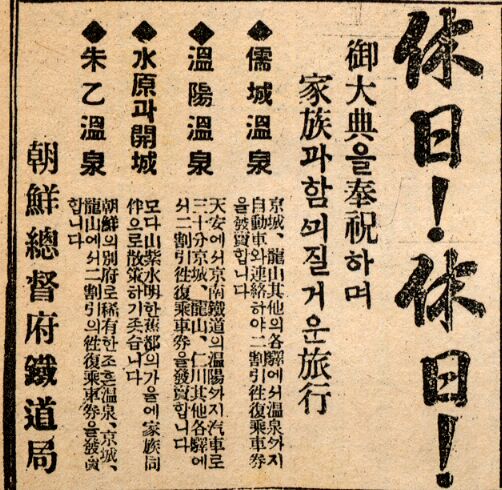 休日!休日!
御大典을奉祝하며
家族과함ᄭᅴ질거운旅行
◆儒城溫泉
京城、龍山其他의各驛에서溫泉ᄭᅡ지
自動車와連絡하야二割引往復乘車券
을發賣합니다
◆溫陽溫泉
天安에서京南鐵道의溫陽ᄭᅡ지汽車로
三十分京城、龍山、仁川其他各驛에
서二割引往復乘車券을發賣합니다
◆水原과開城
모다山紫水明한舊都의가을에家族同
伴으로散策하기좃습니다
◆朱乙溫泉
朝鮮의別府로稀有한조흔溫泉、京城、
龍山에서二割引의往復乘車券을發賣
합니다
朝鮮總督府鐵道局